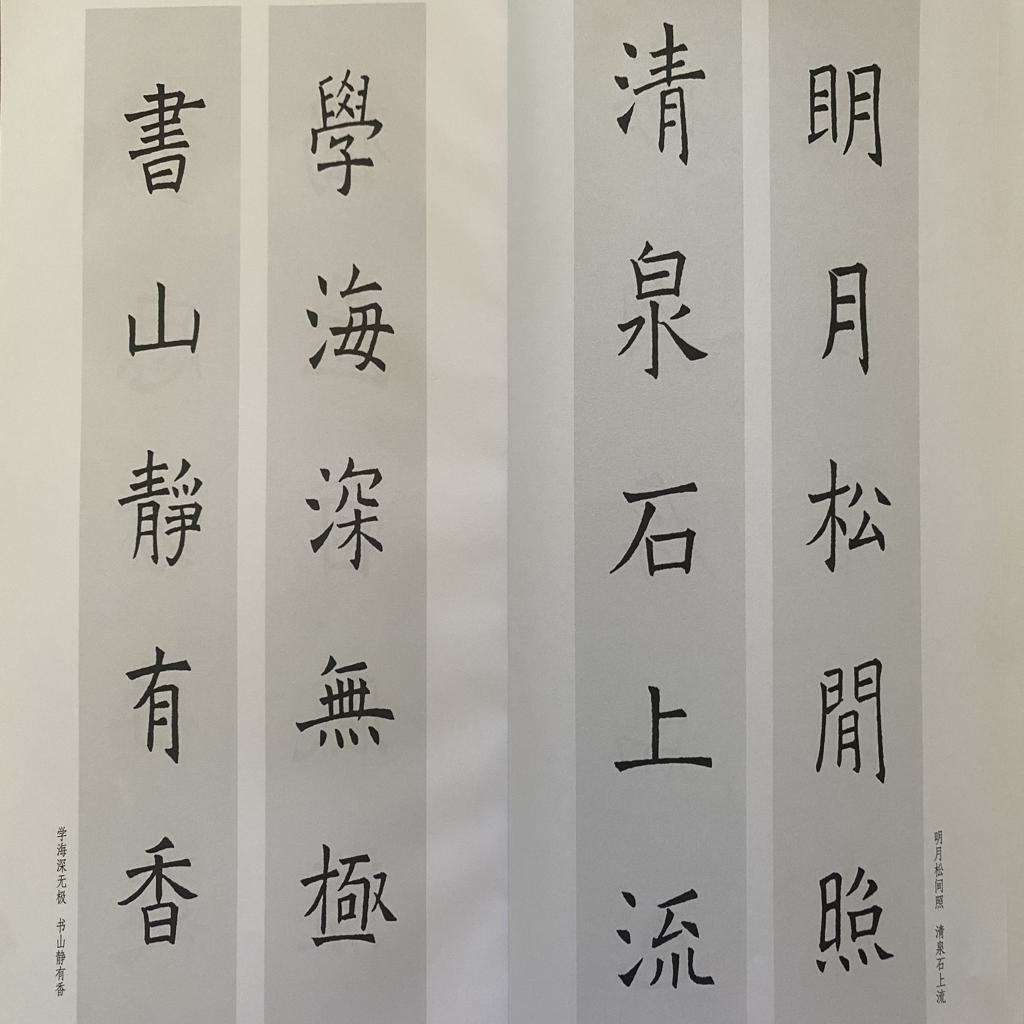 明月松間照
清泉石上流
明月松间照 清泉石上流
學海深無極
書山靜有香
学海深无极 书山静有香